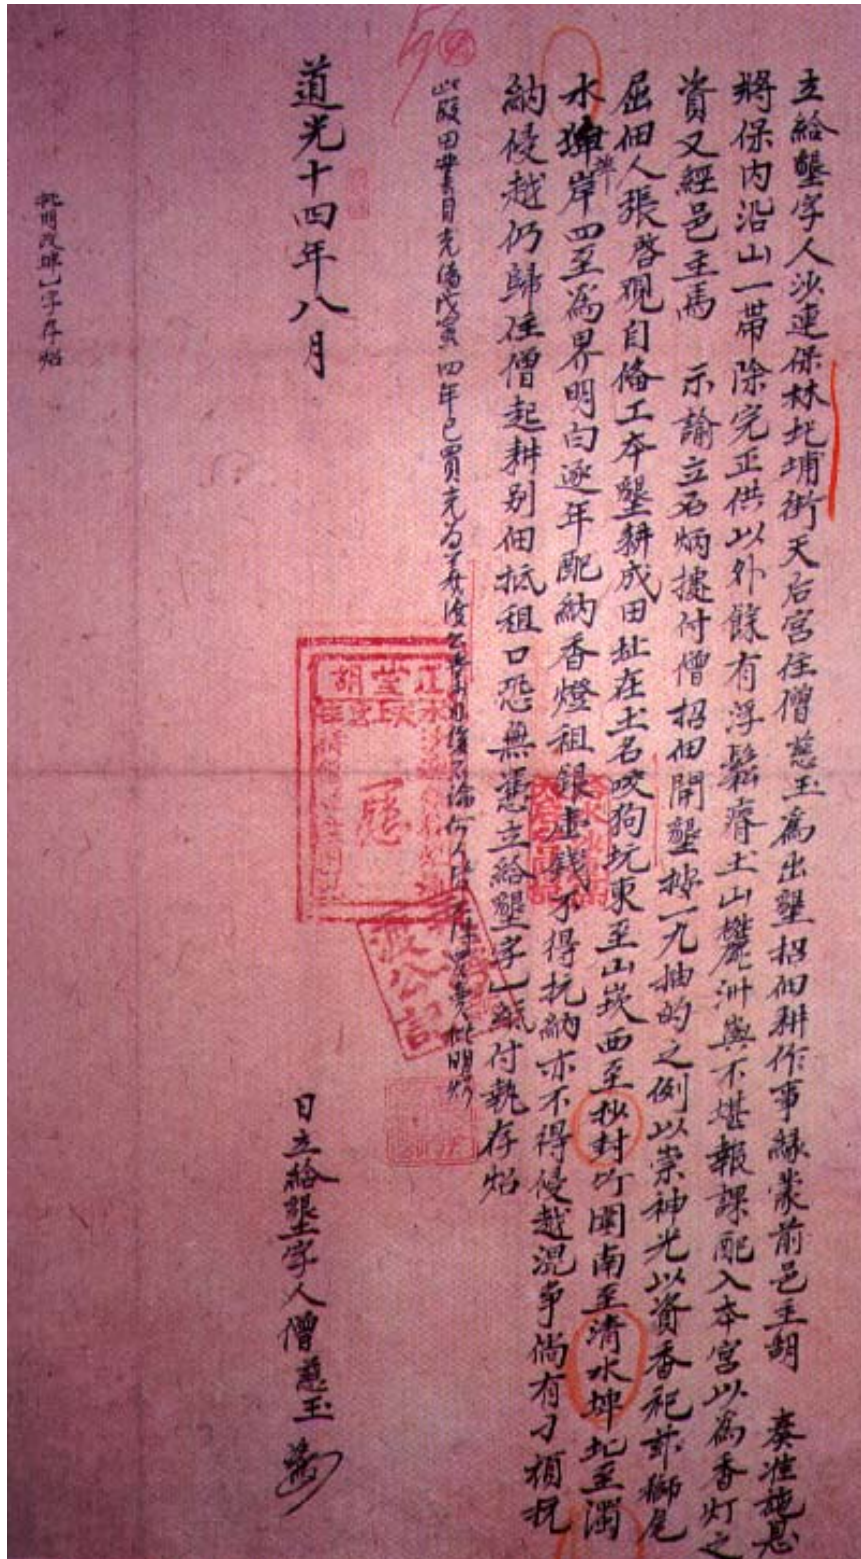 立給墾字人沙連保林圯埔街天后宮住僧慈玉為出墾招佃耕作事緣蒙前邑主胡　奏准施恩
將保內沿山一帶除完正供以外餘有浮鬆瘠土山麓洲與不堪報課配入本宮以為香灯之
資又經邑主馬　示諭立石炳據付僧招佃開墾按一九抽的之例以崇神光以資香祀茲獅尾
屈佃人張啓觀自俻工本墾耕成田址在土名咬狗坑東至山崁西至抄封竹圍南至清水埤北至濁
水埤岸四至為界明白逐年配納香燈租銀 錢不得抗納亦不得侵越混爭倘有刁頑抗
納侵越仍歸住僧起耕别佃抵租口恐無憑立給墾字一紙付執存炤
此段田業 光緒戊寅四年已買充為 不論何人 批明炤
道光十四年八月
日立給墾字人僧慈玉
批明改埤一字存炤
正堂胡